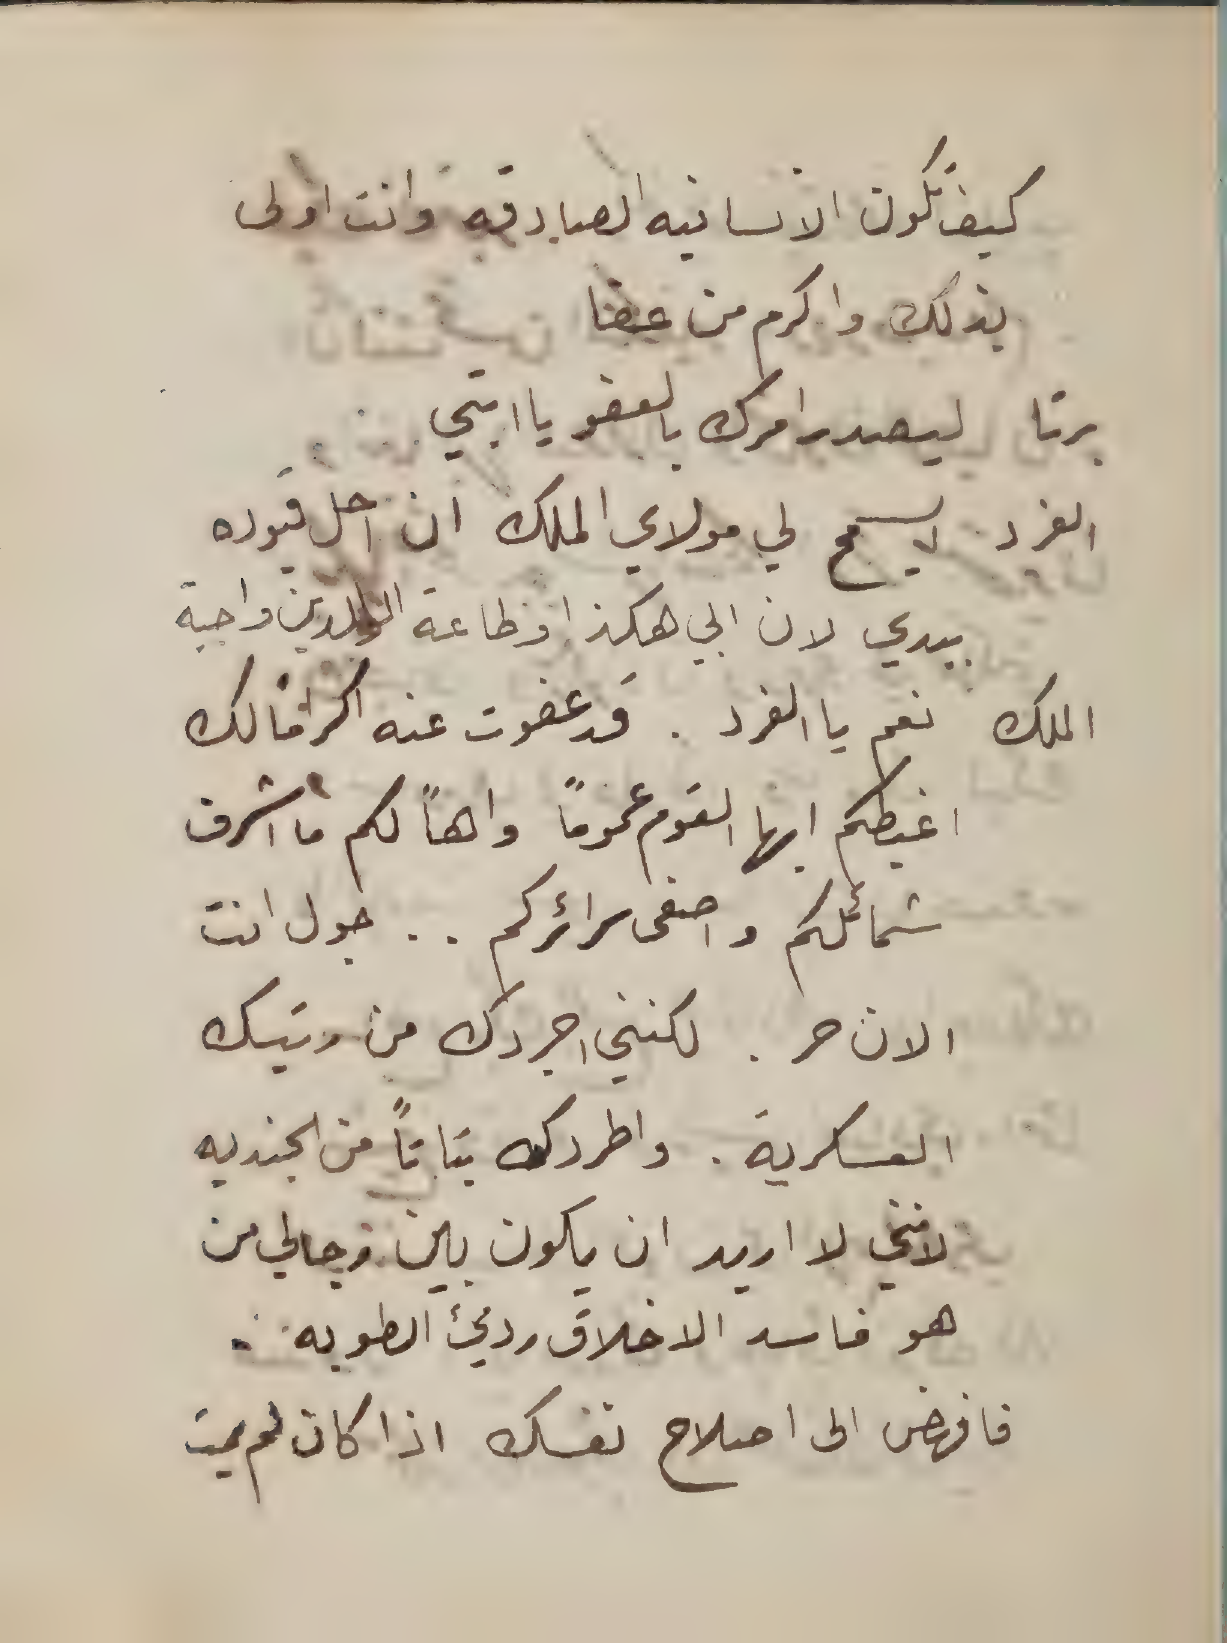 كيف تكون الانسانيه الصادقه وانت اولى
بذلك واكرم من عفا
برتا ليصدر امرك بالعفو يا ابتي
الفرد ليسمح لي مولاي الملك ان احل قيوده
بيدي لان ابي هكذا وطاعة الوالدين واجبة
الملك نعم يا الفرد . قد عفوت عنه اكرامًا لك
اغبطكم ايها القوم عمومًا واهاً لكم ما اشرف
شمائلكم واصفى سرائركم . . جول انت
الان حر . لكنني اجردك من رتبتك
العسكرية . واطردك بتاتاً من الجنديه
لانني لا اريد ان يكون بين رجالي من
هو فاسد الاخلاق ردئ الطويه .
فانهض الى اصلاح نفسك اذا كان لم يمت